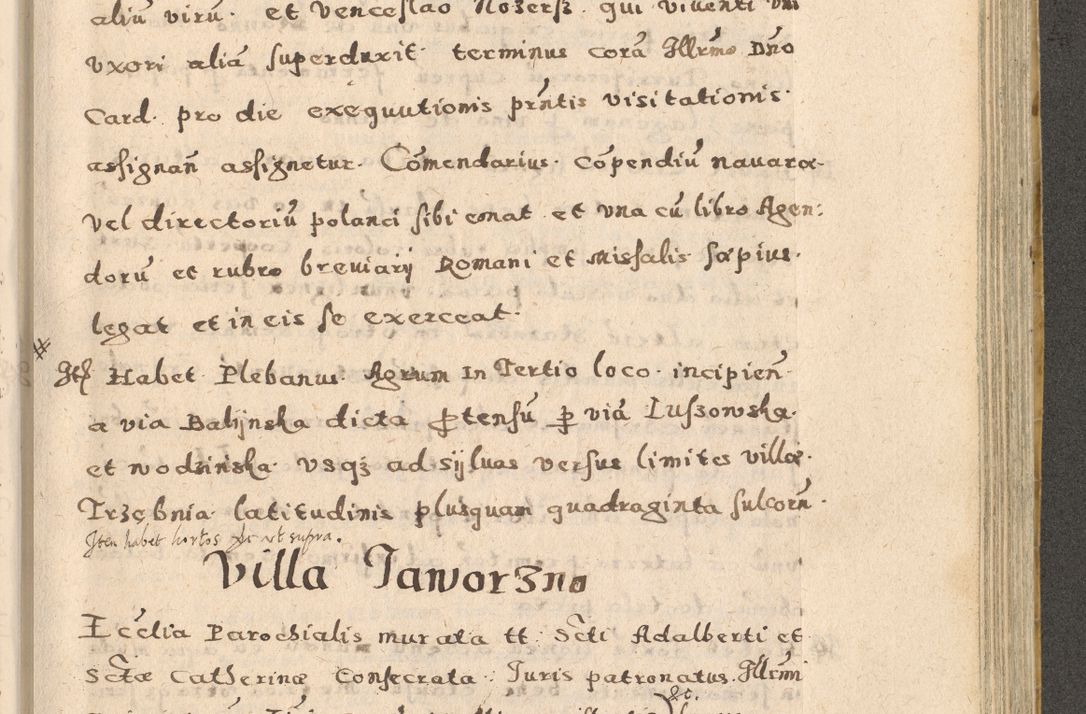 aliū virū. et Venceslao Nozersz. qui viventi
vxori aliā superduxit. terminus corā Illrmo Dno
Card. pro die exequutionis prntis visitationis.
assignan̄ assignetur. Cōmendarius. cōpendiū navaræ.
vel directoriū polanci sibi emat et vna cū libro Agen:
dorū et rubro breviarij Romani et Missalis sæpius.
legat et in eis se exerceat.
Itē Habet Plebanus. Agrum In Tertio loco. incipien̄.
a via Balijnska dicta ꝓtensū ꝑ viā Lussowska.
et wodzińska. vsqȝ ad syluas versus limites villæ.
Trzębnia. latitudinis plusquam quadraginta sulcorū.
Item habet hortos &c ut supra.
Villa Jaworzno
Ecclia Parochialis murata tt. Scti Adalberti et
Sctæ Catherinæ Consecrata. Juris patronatus. Illrmi